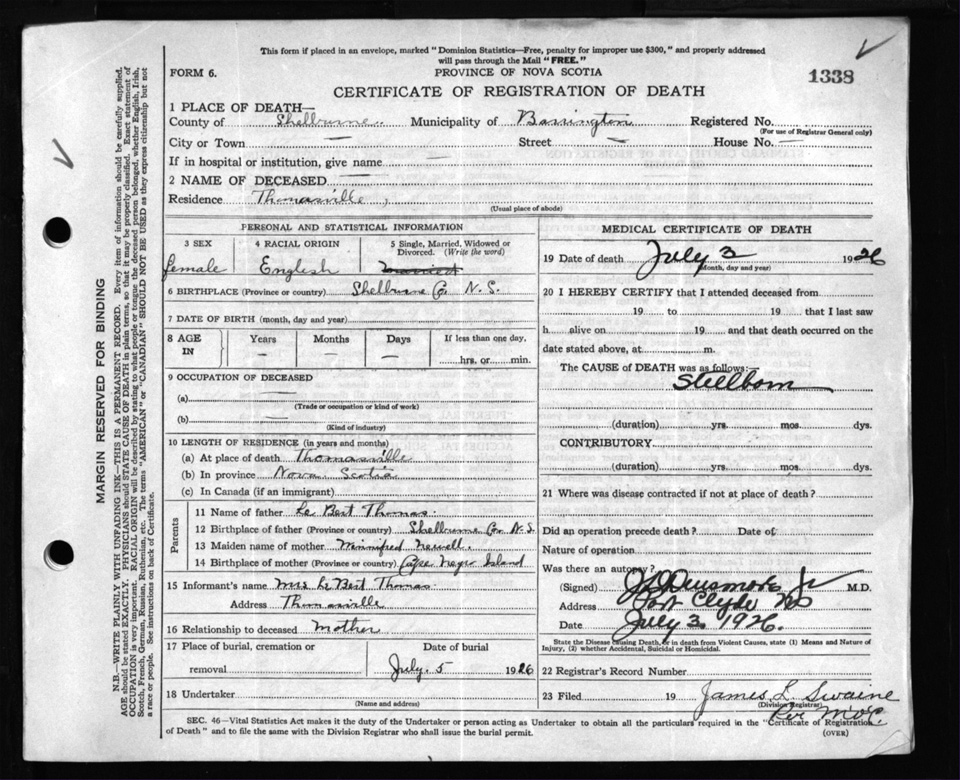 This form if placed in an envelope, marked "Dominion Statistics—Free, penalty for improper use $300," and properly addressed
will pass through the Mail "FREE."
FORM 6.
PROVINCE OF NOVA SCOTIA
1338
CERTIFICATE OF REGISTRATION OF DEATH
1 PLACE OF DEATH—
County of Shelburne Municipality of Barrington Registered No.
(For use of Registrar General only)
City or Town — Street — House No. —
If in hospital or institution, give name —
2 NAME OF DECEASED —
Residence Thomasville,
(Usual place of abode)
PERSONAL AND STATISTICAL INFORMATION
3 SEX 4 RACIAL ORIGIN 5 Single, Married, Widowed or
Divorced. (Write the word)
female English
6 BIRTHPLACE (Province or country) Shelburne Co. N.S.
7 DATE OF BIRTH (month, day and year)
8 AGE IN Years Months Days If less than one day,
— — — hrs. or min.
9 OCCUPATION OF DECEASED
(a) —
(Trade or occupation or kind of work)
(b) —
(Kind of industry)
10 LENGTH OF RESIDENCE (in years and months)
(a) At place of death Thomasville
(b) In province Nova Scotia
(c) In Canada (if an immigrant)
Parents
11 Name of father Le Bert Thomas.
12 Birthplace of father (Province or country) Shelburne Co. N.S.
13 Maiden name of mother Winnifred Newell.
14 Birthplace of mother (Province or country) Cape Negro Island
15 Informant's name Mrs Le Bert Thomas.
Address Thomasville
16 Relationship to deceased Mother
17 Place of burial, cremation or Date of burial
removal July. 5 1926
18 Undertaker
(Name and address)
MEDICAL CERTIFICATE OF DEATH
19 Date of death July 3 1926
(Month, day and year)
20 I HEREBY CERTIFY that I attended deceased from
19 to 19 that I last saw
h alive on 19 and that death occurred on the
date stated above, at m.
The CAUSE of DEATH was as follows:—
Stillborn
(duration) yrs. mos. dys.
CONTRIBUTORY
(duration) yrs. mos. dys.
21 Where was disease contracted if not at place of death?
Did an operation precede death? Date of
Nature of operation
Was there an autopsy?
(Signed) Densmore Jr M.D.
Address Port Clyde NS
Date July 3 1926.
State the Disease Causing Death, or in death from Violent Causes, state (1) Means and Nature of
Injury, (2) whether Accidental, Suicidal or Homicidal.
22 Registrar's Record Number
23 Filed 19 James L Swaine
(Division Registrar)
SEC. 46—Vital Statistics Act makes it the duty of the Undertaker or person acting as Undertaker to obtain all the particulars required in the "Certificate of Registration
of Death" and to file the same with the Division Registrar who shall issue the burial permit.
(OVER)
MARGIN RESERVED FOR BINDING
N.B.—WRITE PLAINLY WITH UNFADING INK—THIS IS A PERMANENT RECORD. Every item of information should be carefully supplied.
AGE should be stated EXACTLY. PHYSICIANS should STATE CAUSE OF DEATH in plain terms, so that it may be properly classified. Exact statement of
OCCUPATION is very important. RACIAL ORIGIN will be described by stating to what people or tongue the deceased person belonged, whether English, Irish,
Scotch, French, German, Russian, Ruthenian, etc. The terms "AMERICAN" or "CANADIAN" SHOULD NOT BE USED as they express citizenship but not
a race or people. See instructions on back of Certificate.